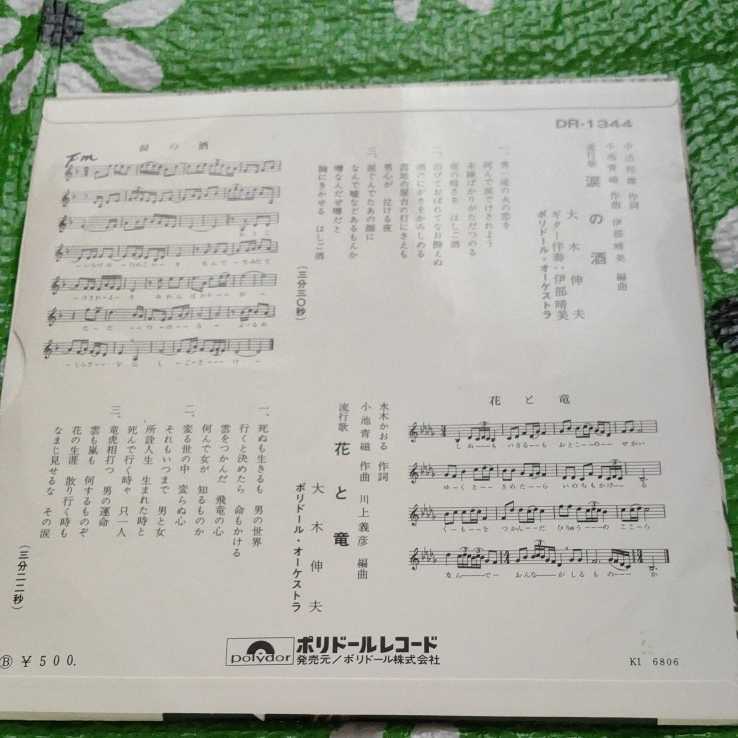 DR-1344
涙の酒
Fm
小池青磁 作曲 伊部晴美 編曲
流行歌 涙の酒
大木伸夫
ギター伴奏:伊部晴美
ポリドール・オーケストラ
夜の暗さを はしご酒
二、浴びておぼれてなお酔えぬ
酒のにがさをかみしめる
三、
男心が 泣ける夜
なんで嘘などあるもんか
噂なんだぜ噂だと
胸にきかせる はしご酒
(三分三〇秒)
花と竜
しぬもいきるもおとこのせかい
ゆくときめたらいのちもかける
くもをつかんだひりゅうのこころ
なんでおんながしるものか
水木かおる 作詞
小池青磁 作曲 川上義彦 編曲
流行歌 花と竜
大木伸夫
ポリドール・オーケストラ
一、死ぬも生きるも 男の世界
行くと決めたら 命もかける
雲をつかんだ 飛竜の心
何んで女が 知るものか
二、変る世の中 変らぬ心
それもいつまで 男と女
所詮人生 生まれた時と
死んで行く時ゃ 只一人
三、竜虎相打つ 男の運命
雲も嵐も 何するものぞ
花の生涯 散り行く時も
なまじ見せるな その涙
(三分二二秒)
Ⓑ ¥500.
polydor
ポリドールレコード
発売元/ポリドール株式会社
KI 6806